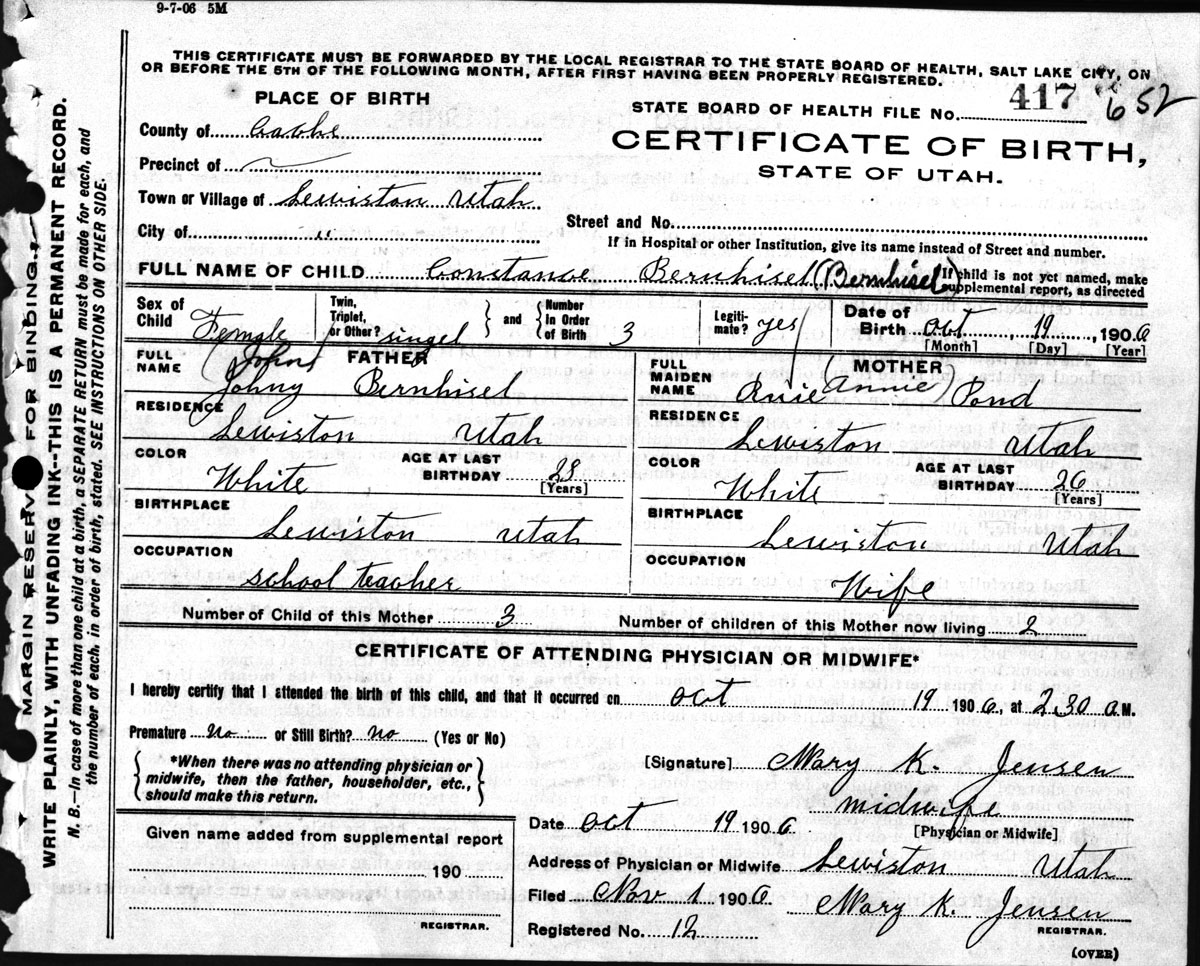 9-7-06 5M
THIS CERTIFICATE MUST BE FORWARDED BY THE LOCAL REGISTRAR TO THE STATE BOARD OF HEALTH, SALT LAKE CITY, ON
OR BEFORE THE 5TH OF THE FOLLOWING MONTH, AFTER FIRST HAVING BEEN PROPERLY REGISTERED.
MARGIN RESERV FOR BINDING.
WRITE PLAINLY, WITH UNFADING INK--THIS IS A PERMANENT RECORD.
N. B.—In case of more than one child at a birth, a SEPARATE RETURN must be made for each, and
the number of each, in order of birth, stated. SEE INSTRUCTIONS ON OTHER SIDE.
PLACE OF BIRTH
STATE BOARD OF HEALTH FILE No. 417 652
County of Cache
CERTIFICATE OF BIRTH,
Precinct of
STATE OF UTAH.
Town or Village of Lewiston Utah
Street and No.
City of "
If in Hospital or other Institution, give its name instead of Street and number.
FULL NAME OF CHILD Constance Bernhisel (Bernhisel) If child is not yet named, make
supplemental report, as directed
Sex of Child Female
Twin, Triplet, or Other? singel } and { Number in Order of Birth 3
Legiti-mate? yes
Date of Birth Oct 19, 1906
[Month] [Day] [Year]
FATHER
FULL NAME (John) Johny Bernhisel
RESIDENCE
Lewiston Utah
COLOR White
AGE AT LAST BIRTHDAY 28
[Years]
BIRTHPLACE
Lewiston Utah
OCCUPATION
school teacher
MOTHER
FULL MAIDEN NAME Anie (Annie) Pond
RESIDENCE
Lewiston Utah
COLOR White
AGE AT LAST BIRTHDAY 26
[Years]
BIRTHPLACE
Lewiston Utah
OCCUPATION
Wife
Number of Child of this Mother 3 Number of children of this Mother now living 2
CERTIFICATE OF ATTENDING PHYSICIAN OR MIDWIFE*
I hereby certify that I attended the birth of this child, and that it occurred on Oct 19 1906, at 2.30 a.M.
Premature No or Still Birth? no (Yes or No)
{ *When there was no attending physician or
midwife, then the father, householder, etc.,
should make this return. }
[Signature] Mary K. Jensen
midwife
[Physician or Midwife]
Date Oct 19 1906
Address of Physician or Midwife Lewiston Utah
Filed Nov 1 1906 Mary K. Jensen
REGISTRAR.
Registered No. 12
(OVER)
Given name added from supplemental report
190
REGISTRAR.